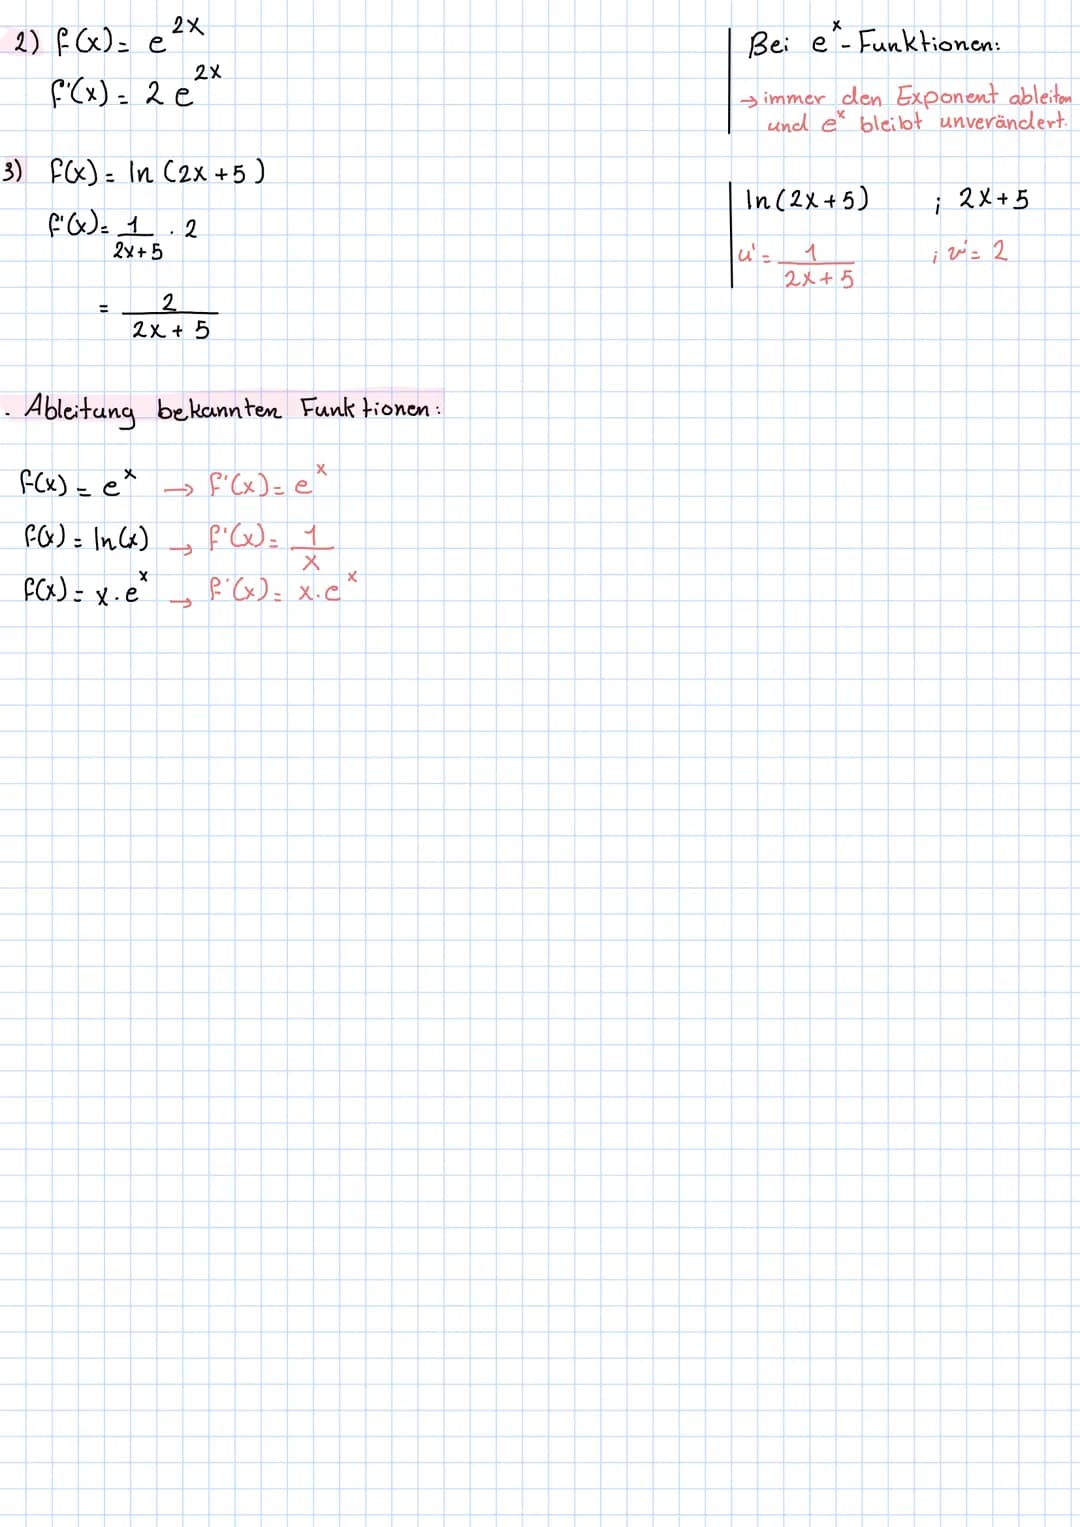 2) f(x) = e^2x
f'(x) = 2 e^2x
Bei e^x - Funktionen:
→ immer den Exponent ableiten
und e^x bleibt unverändert.
3) f(x) = ln (2x + 5)
f'(x) = 1/(2x+5) · 2
= 2/(2x + 5)
ln (2x + 5) ; 2x + 5
u' = 1/(2x + 5) ; v' = 2
. Ableitung bekannten Funktionen:
f(x) = e^x → f'(x) = e^x
f(x) = ln(x) → f'(x) = 1/x
f(x) = x · e^x → f'(x) = x · e^x